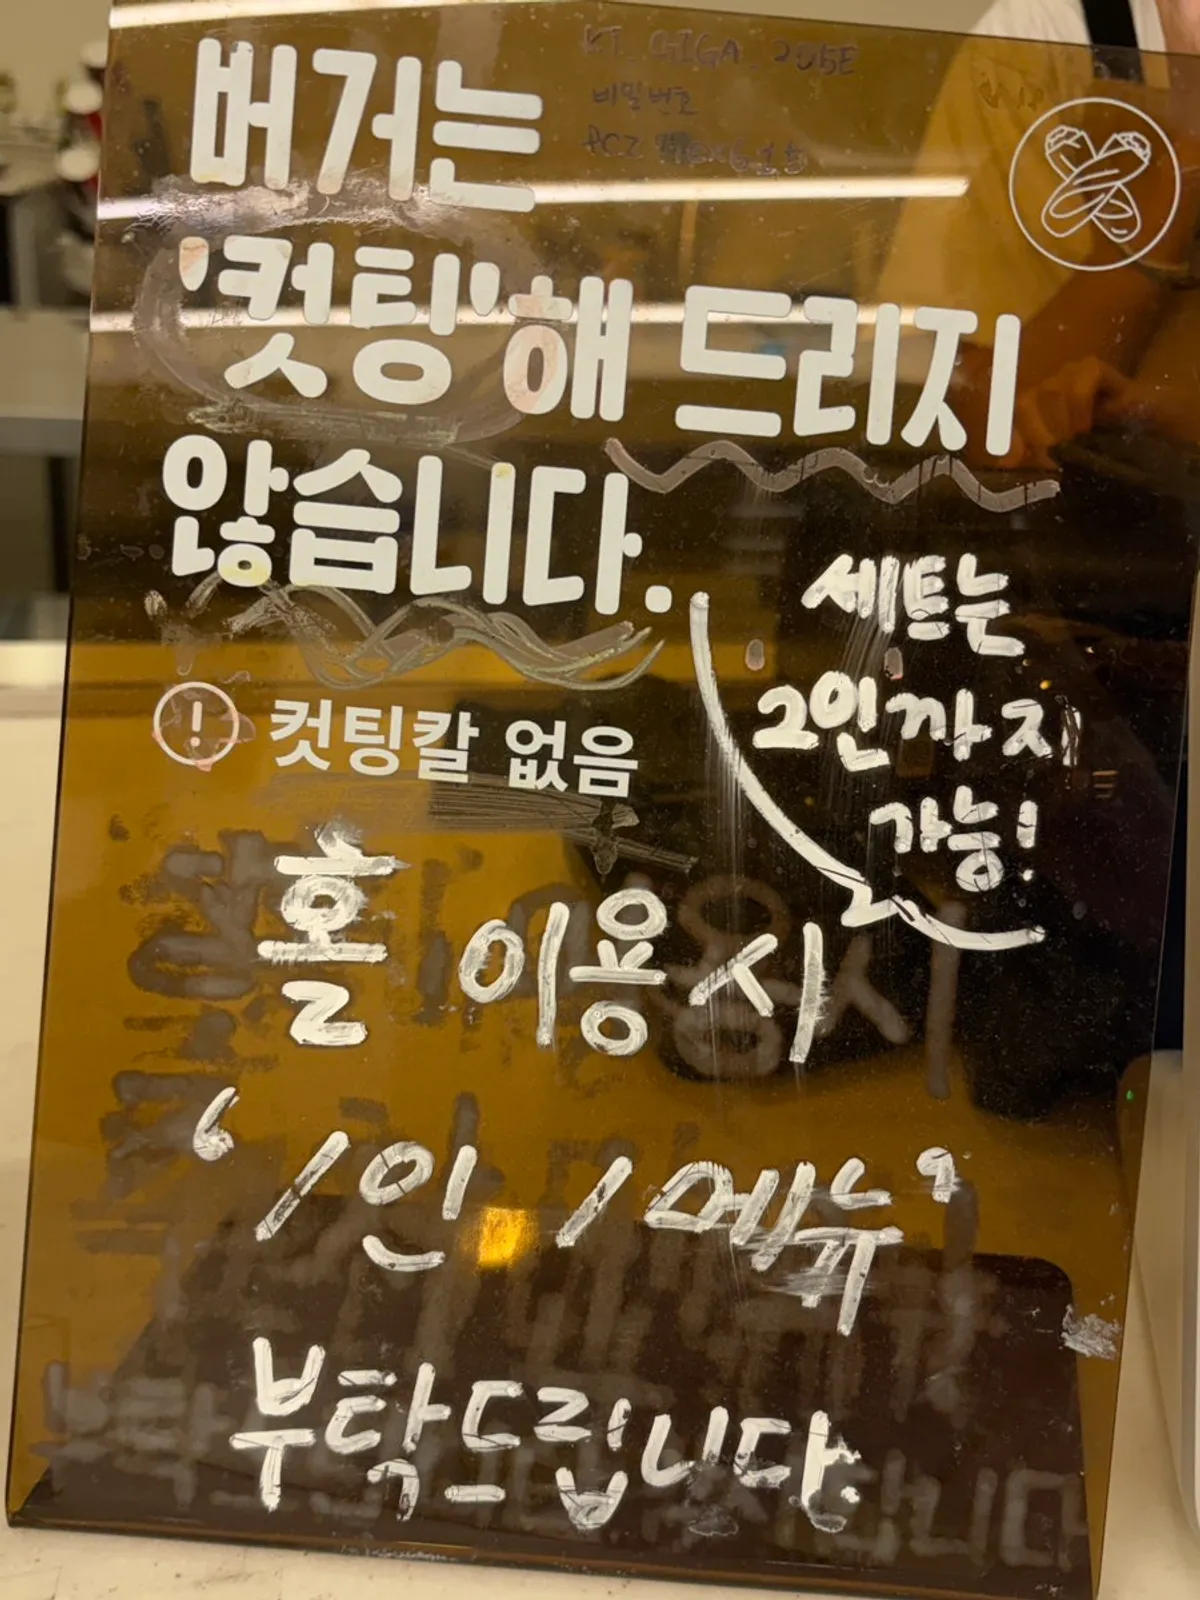 KT_GIGA_205E
비밀번호
버거는
'컷팅'해 드리지
않습니다.
세트는
2인까지
가능!
컷팅칼 없음
홀 이용시
“1인 1메뉴”
부탁드립니다.